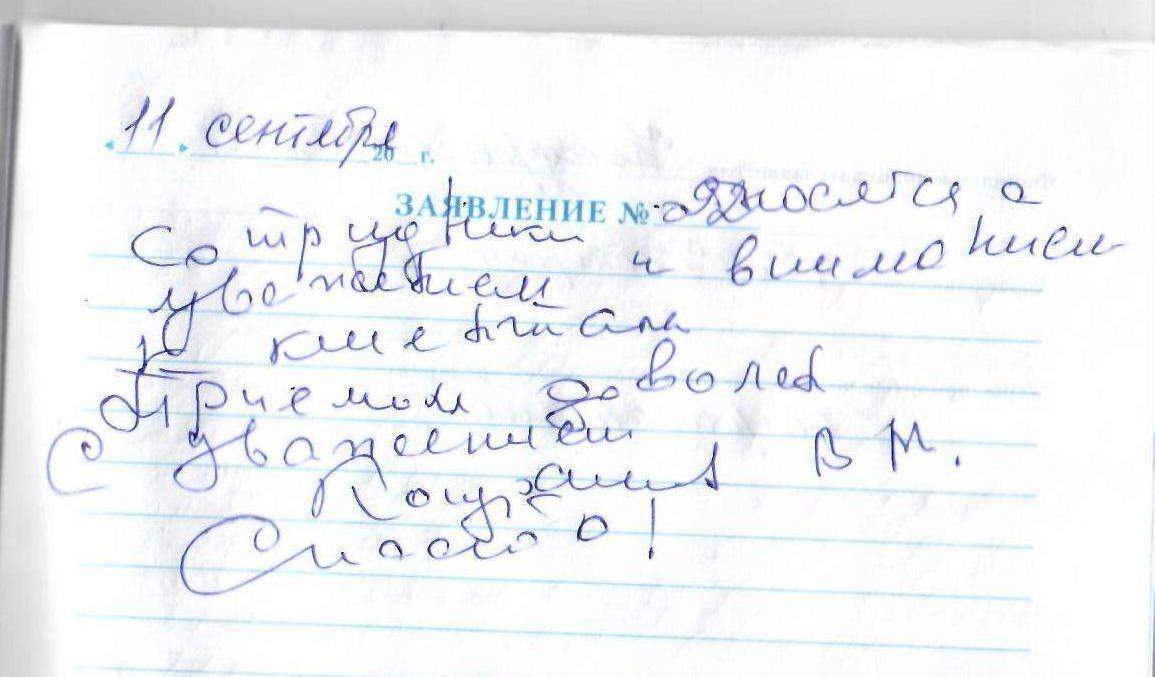 « 11 » сентября 20 г.
ЗАЯВЛЕНИЕ №
Сотрудники относятся с
уважением и вниманием
к клиентам
Приемом доволен
С уважением В М.
Спасибо!